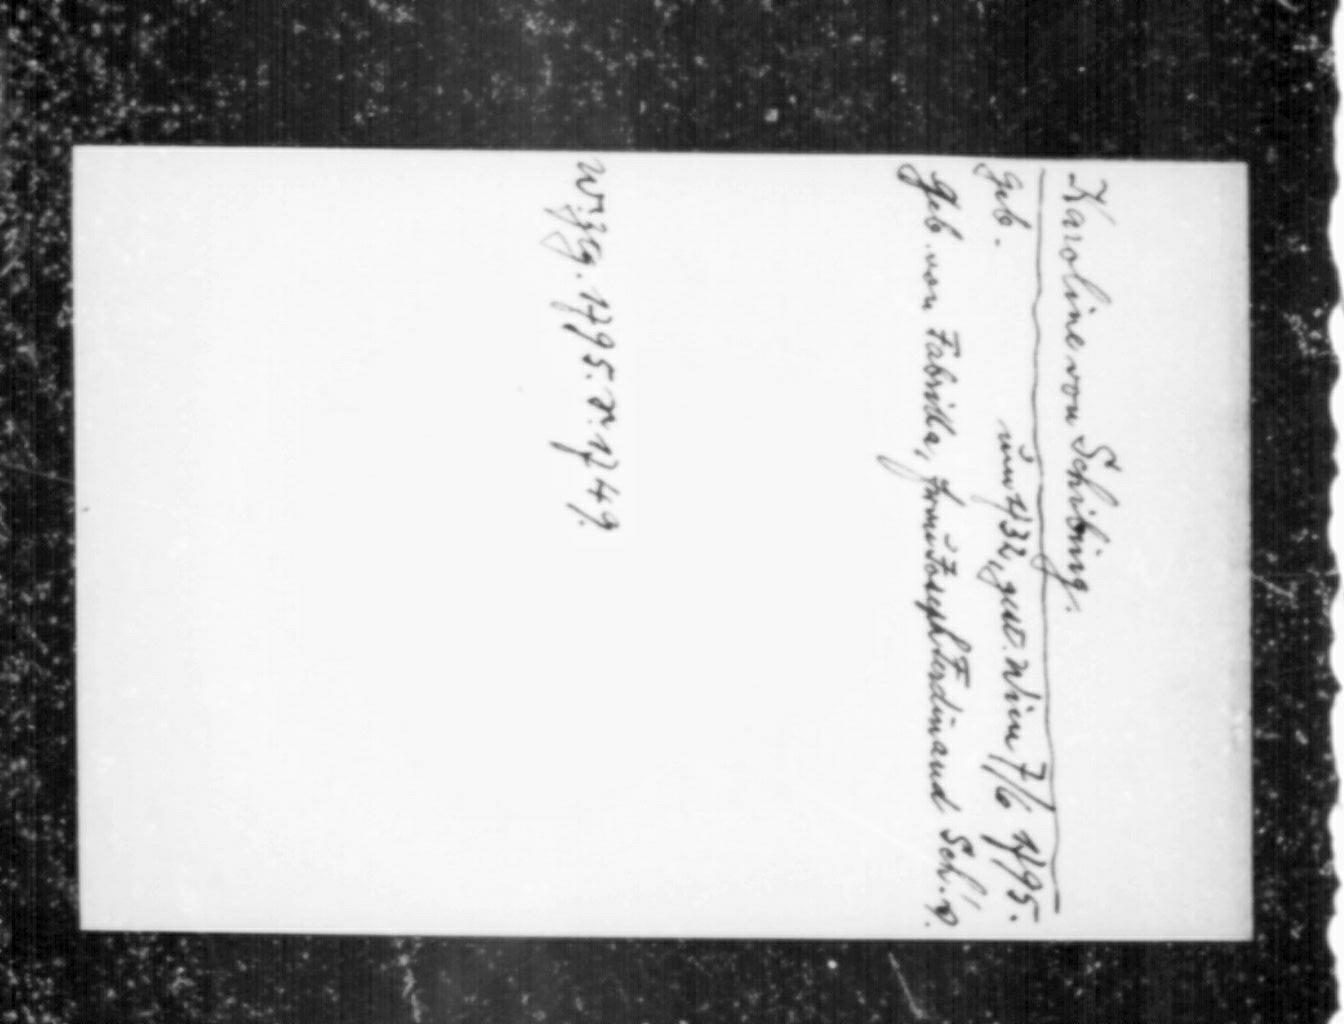 Karoline von Schibing.
geb. um 1732, gest. Wien 7/6 1795.
geb. von Fabrilla, Joseph Ferdinand Sch.'s.
W. Zg. 1795. S. 1749.